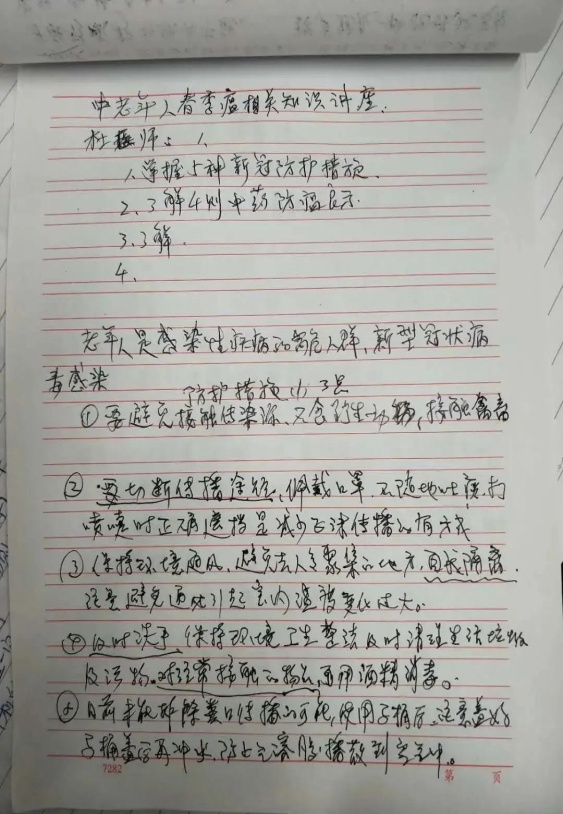 中老年人春季瘟相关知识讲座.
杜 师: 1、
1、掌握5种新冠防护措施.
2、了解4则中药防瘟食示.
3、了解.
4、
老年人是感染性疾病的高危人群,新型冠状病
毒感染
防护措施 (1) 了品
① 要避免接触传染源、不食野生动物,接触禽畜
② 要切断传播途径,佩戴口罩.不随地吐痰.打
喷嚏时正确遮挡是减少飞沫传播的有方式
③ 保持环境通风,避免去人多聚集的地方,自我隔离.
注意避免通风引起室内温度变化过大。
④ 及时洗手 保持环境卫生整洁及时清理生活垃圾
及污物.对经常接触的物品,可用酒精消毒。
⑤ 目前未能排除粪口传播的可能,使用马桶后.注意盖好
马桶盖后再冲水,防止气溶胶播散到空气中。
7282
第 页